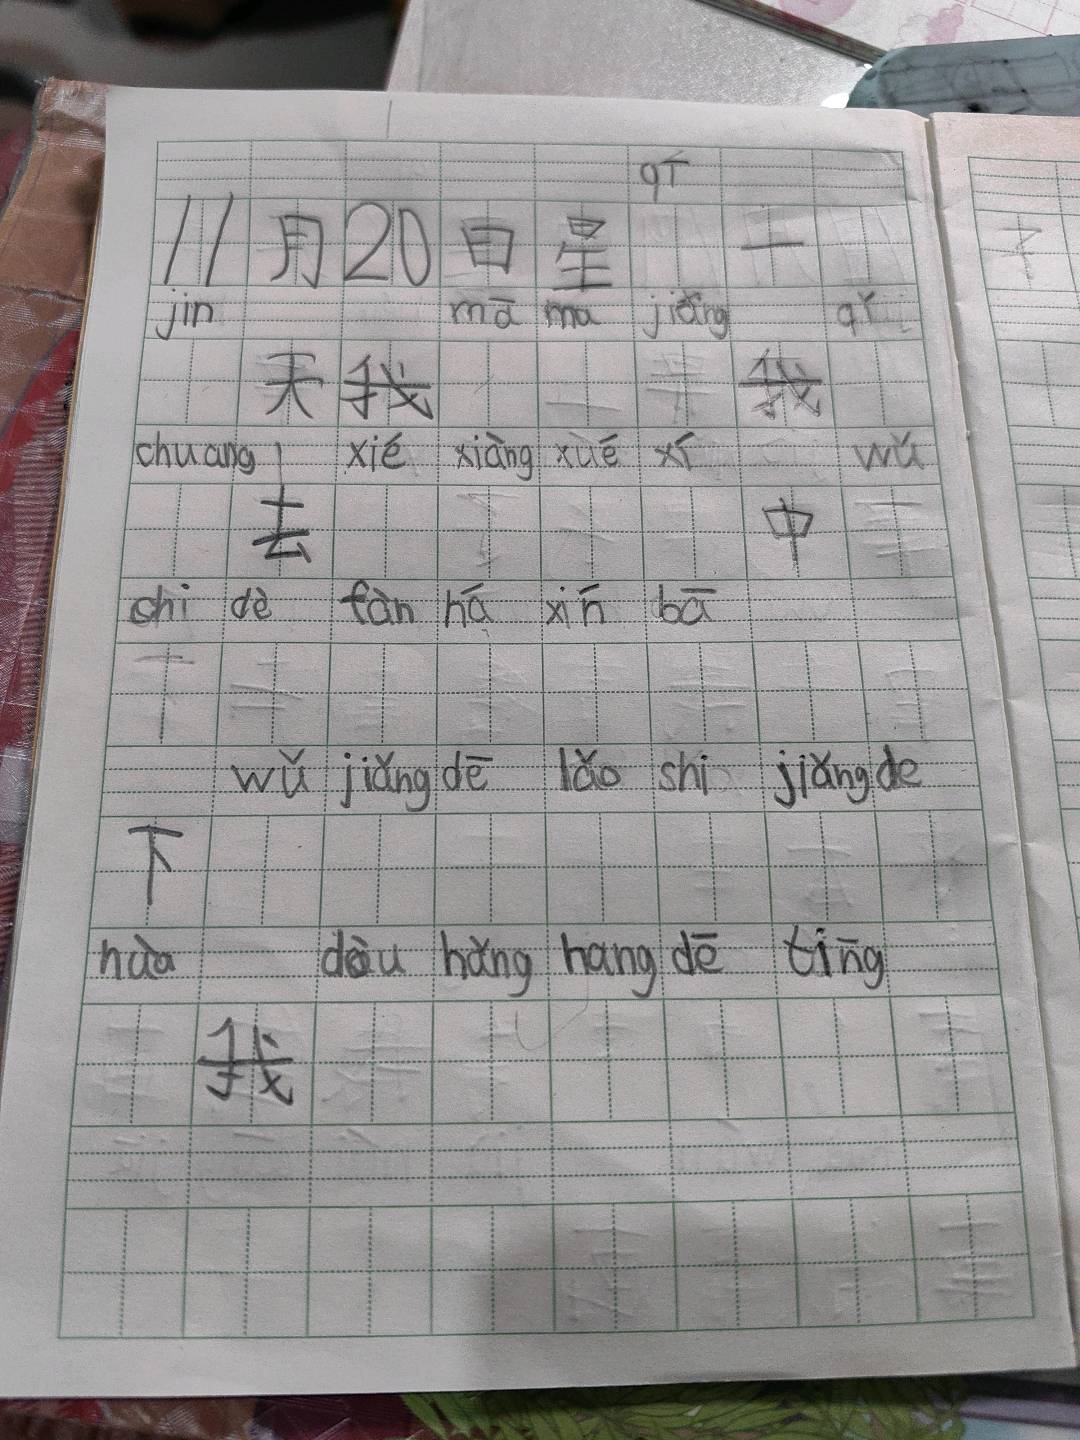 qī
11月20日星 一
jin mā ma jiǎng qǐ
天我 我
chuang xié xiàng xué xí wǔ
去 中
shi dè fàn há xiń bā
wǔ jiǎng dē lǎo shi jiǎng de
下
hùa dòu hǎng hang dē tīng
我